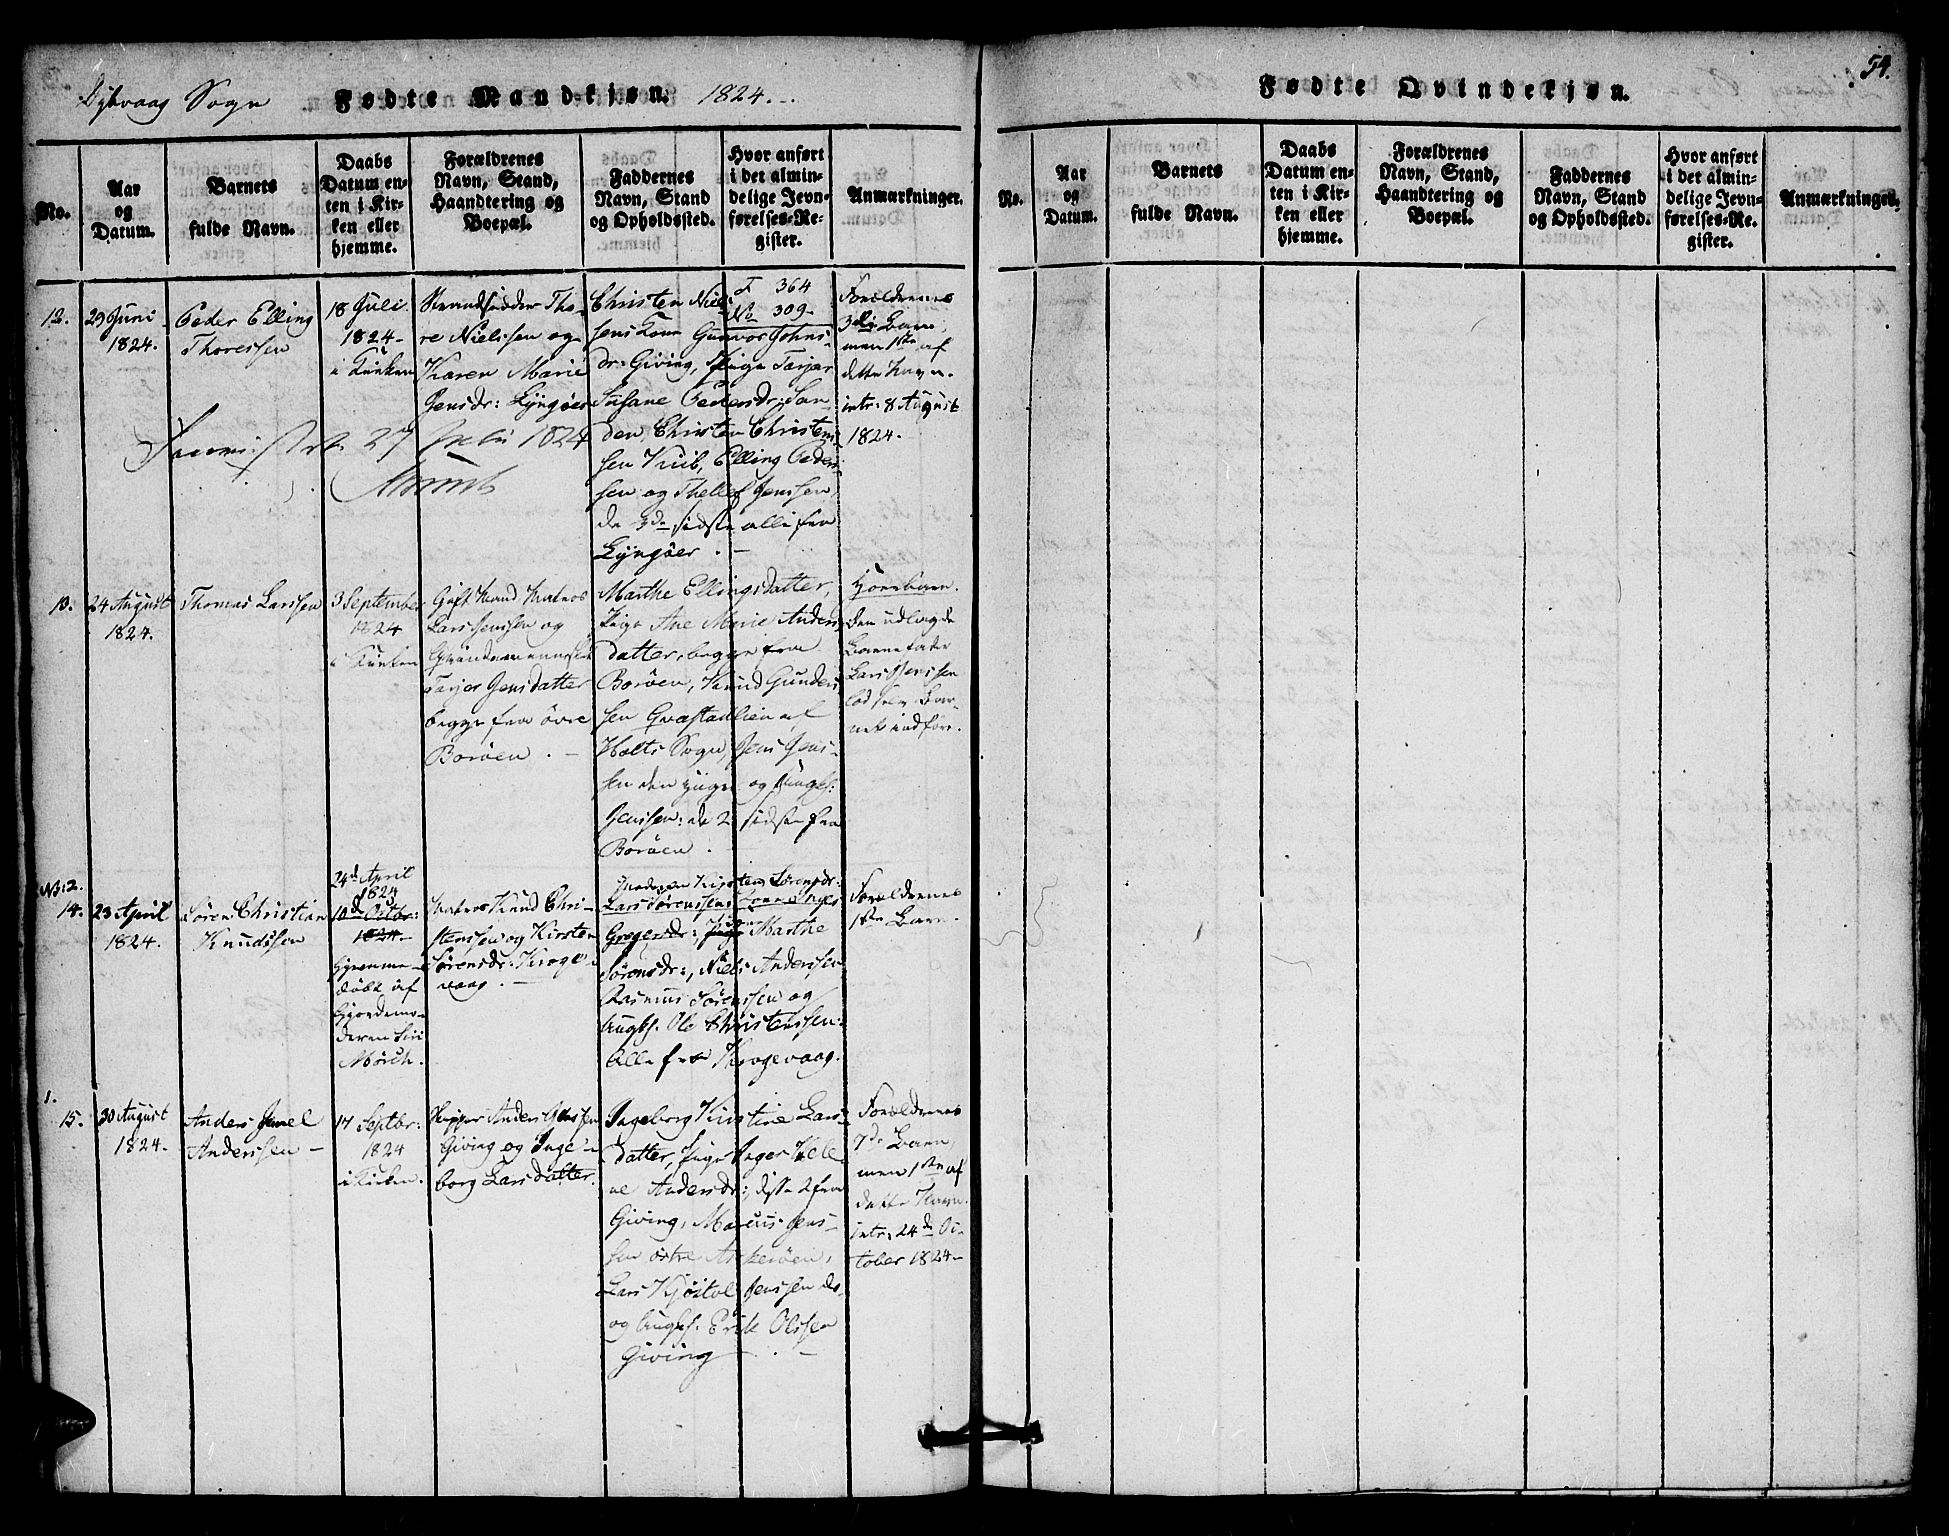 Dybvaag Sogn
Fødte Mandkjøn. 1824.
No.
Aar
og
Datum.
Barnets
fulde Navn.
Daabs
Datum en-
ten i Kir-
ken eller
hjemme.
Forældrenes
Navn, Stand,
Haandtering og
Boepæl.
Faddernes
Navn, Stand
og Opholdssted.
Hvor anført
i det almin-
delige Jevn-
førelses-Re-
gister.
Anmærkninger.
12.
29 Juni
1824.
Peder Elling
Thoressen
18 Juli
1824
i Kirken
Strandsidder Tho-
re Nielssen og
Karen Marie
Jensdr: Lyngöer
Christen Niel-
sens Kone Gunvor Johns-
dr: Giving, Pige Tarjer
Susane Pedersdr: San
den, Christen Christen-
sen Kuib, Elling Peder-
sen og Thellef Jenssen,
de 3de sidste alle fra
Lyngöer.
F 364
No 309
Forældrenes
3die Barn,
men 1ste af
dette Navn.
intr: 8 August
1824.
27 Juli 1824
13.
24 August
1824.
Thomas Larssen
3 September
1824
i Kirken
Gift Mand Matros
Lars Jenssen og
Qvindemenneske
Tarjer Jensdatter
begge fra övre
Boröen.
Marthe Ellingsdatter,
Pige Ane Marie Anders
datter, begge fra
Boröen, Knud Gunder-
sen Qvastadlien af
Holts Sogn, Jens Jens-
sen den yngre og Ungks:
Jenssen: de 2 sidste fra
Boröen.
Horebarn.
Den udlagde
Barnefader
Lars Jenssen
lod selv Bar-
net indføre.
No: 2.
14.
23 April
1824.
Sören Christian
Knudssen
24de April
1824
10de Octbr:
1824.
hjemme-
døbt af
Gjordemo-
deren Siri
Mörch.
Matros Knud Chri-
stenssen og Kirsten
Sörensdr: Kroge-
vaag.
Moderen Kirsten Sörensdr:
Lars Sörenssens Kone Inger
Gregersdr:, Pige Marthe
Sörensdr:, Niels Anderssen
Rasmus Sörenssen og
Ungks. Ole Christenssen:
Alle fra Krogevaag.
Forældrenes
1ste Barn.
1.
15.
30 August
1824.
Anders Juel
Anderssen
17 Septbr:
1824
i Kirken.
Skipper Anders Olssen
Giving og Inge-
borg Larsdatter.
Ingeborg Kirstine Lars-
datter, Pige Inger Hele-
ne Andersdr:, disse 2 fra
Giving, Marcus Jens-
sen östre Askeröen,
Lars Kjöstol Jenssen do
og Ungks. Erik Olssen
Giving
Forældrenes
7de Barn,
men 1ste af
dette Navn.
intr: 24de Oc-
tober 1824
54.
Fødte Qvindekjøn.
No.
Aar
og
Datum.
Barnets
fulde Navn.
Daabs
Datum en-
ten i Kir-
ken eller
hjemme.
Forældrenes
Navn, Stand,
Haandtering og
Boepæl.
Faddernes
Navn, Stand
og Opholdssted.
Hvor anført
i det almin-
delige Jevn-
førelses-Re-
gister.
Anmærkninger.